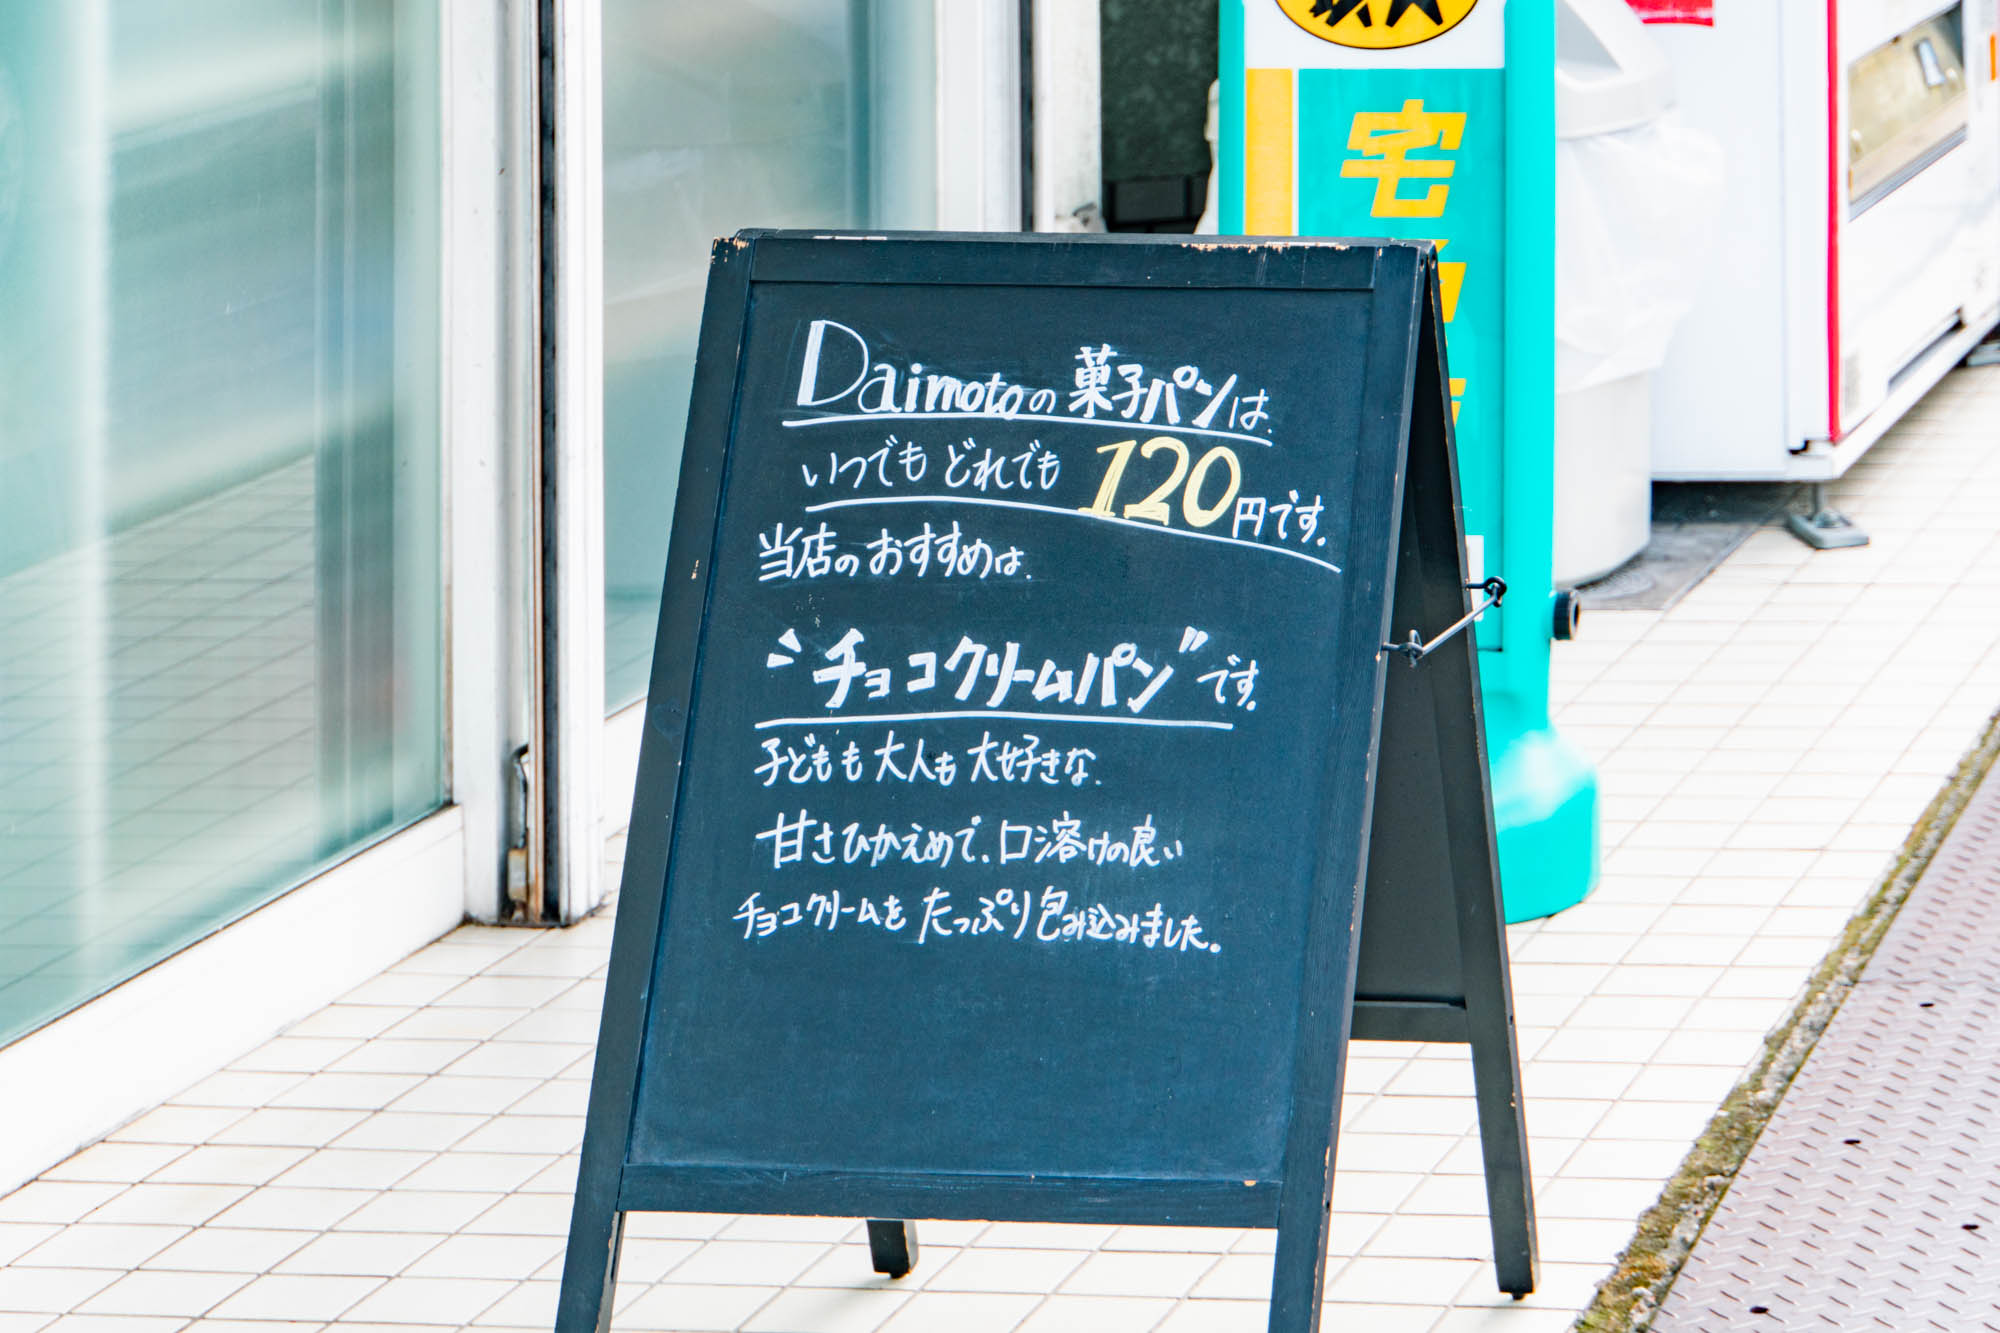 Daimotoの菓子パンは、
いつでも どれでも 120円です。
当店のおすすめは、
"チョコクリームパン"です。
子どもも大人も大好きな、
甘さひかえめで、口溶けの良い
チョコクリームを たっぷり包み込みました。
宅